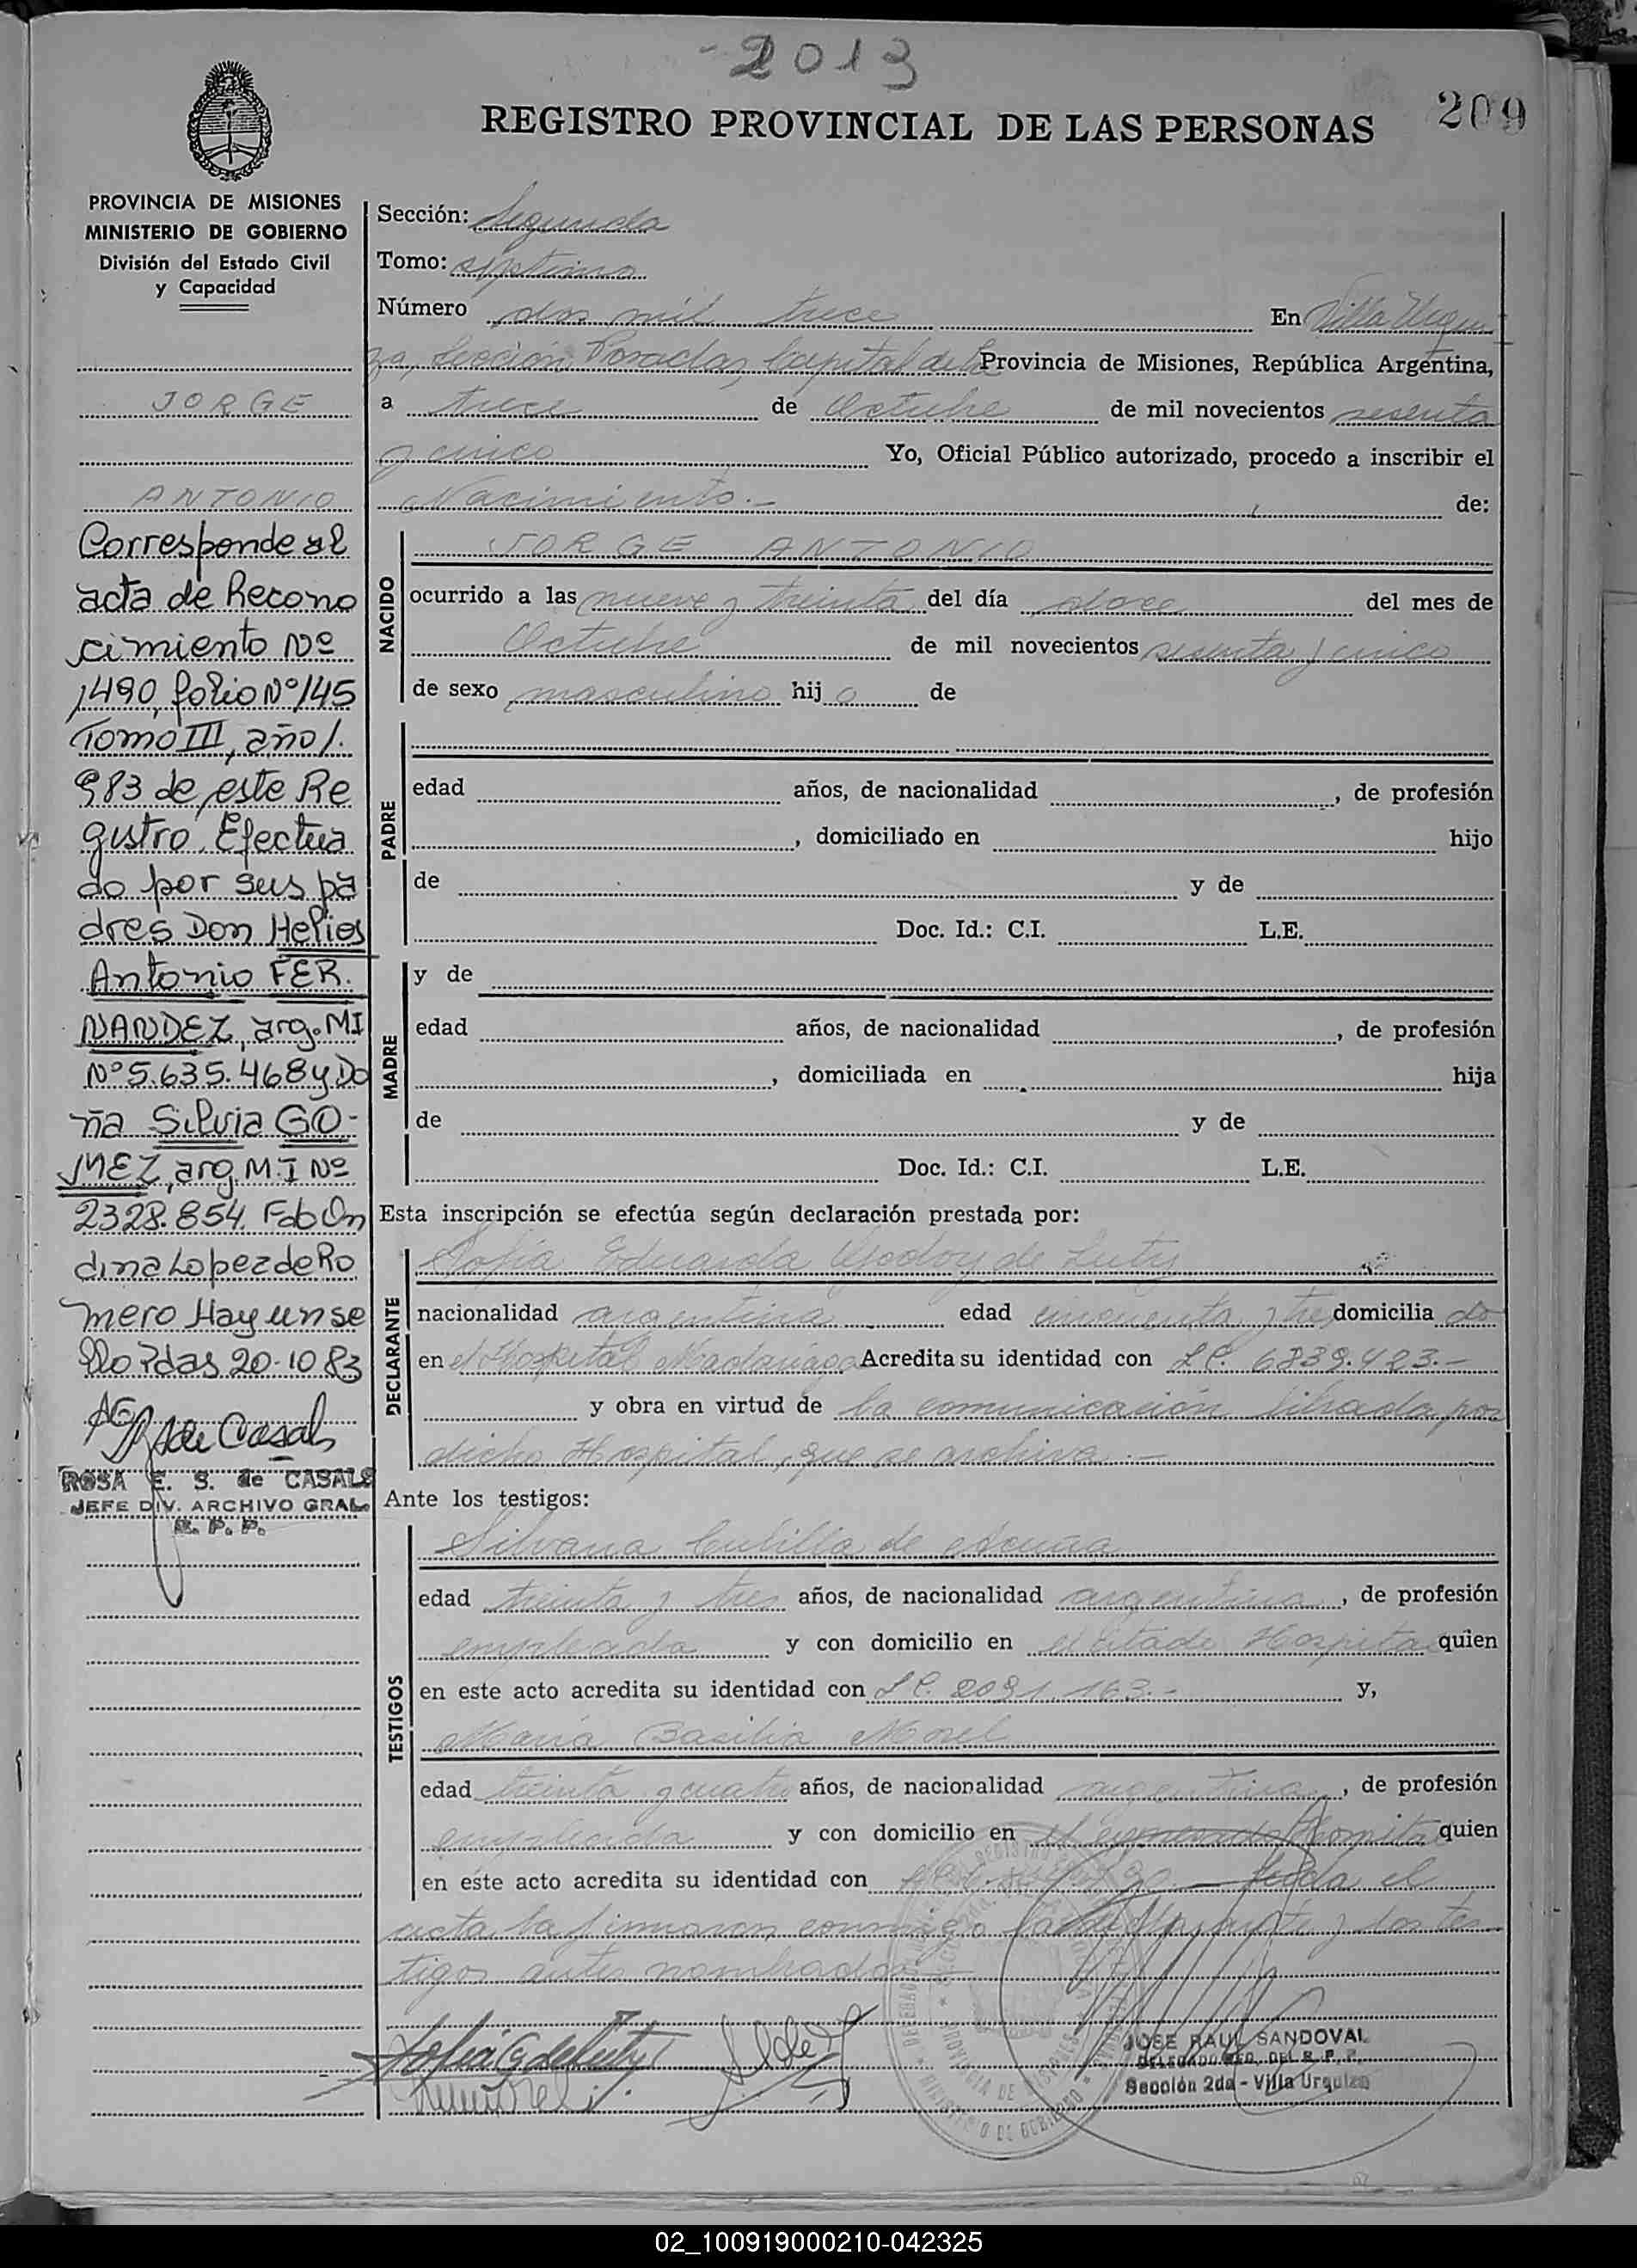 - 2013
209
REGISTRO PROVINCIAL DE LAS PERSONAS
PROVINCIA DE MISIONES
MINISTERIO DE GOBIERNO
División del Estado Civil
y Capacidad
JORGE
ANTONIO
Corresponde al
acta de Recono
cimiento Nº
1490, folio Nº 145
Tomo III, año 1.
983 de este Re
gistro. Efectua
do por sus pa
dres Don Helios
Antonio FER.
NANDEZ, arg. MI
Nº 5.635.468 y Do
ña Silvia GO-
MEZ, arg. M.I Nº
2328.854. Fdo On
dina Lopez de Ro
mero Hay un se
llo Pdas 20-10-83
ROSA E. S. de CASALS
JEFE DIV. ARCHIVO GRAL.
R. P. P.
Sección: Segunda
Tomo: séptimo
Número dos mil trece En Villa Urqui
za, Sección Posadas, Capital de la Provincia de Misiones, República Argentina,
a trece de Octubre de mil novecientos sesenta
y cinco Yo, Oficial Público autorizado, procedo a inscribir el
Nacimiento.- de:
NACIDO
JORGE ANTONIO
ocurrido a las nueve y treinta del día doce del mes de
Octubre de mil novecientos sesenta y cinco
de sexo masculino hijo de
PADRE
edad años, de nacionalidad , de profesión
, domiciliado en hijo
de y de
Doc. Id.: C.I. L.E.
MADRE
y de
edad años, de nacionalidad , de profesión
, domiciliada en hija
de y de
Doc. Id.: C.I. L.E.
Esta inscripción se efectúa según declaración prestada por:
DECLARANTE
Sofía Eduarda Godoy de
nacionalidad argentina edad cincuenta y tres domicilia do
en el Hospital Madariaga Acredita su identidad con L.C. 6839.423.-
y obra en virtud de la comunicación librada por
dicho Hospital, que se archiva.-
Ante los testigos:
TESTIGOS
Silvana Cubilla de Acuña
edad treinta y tres años, de nacionalidad argentina, de profesión
empleada y con domicilio en el citado Hospital quien
en este acto acredita su identidad con L.C. 2091.163.- y,
María Basilia Morel
edad treinta y cuatro años, de nacionalidad argentina, de profesión
empleada y con domicilio en el Hospital quien
en este acto acredita su identidad con Leída el
acta la firmaron conmigo la declarante y los tes
tigos antes nombrados
JOSE RAUL SANDOVAL
DELEGADO REG. DEL R. P. P.
Sección 2da - Villa Urquiza
02_100919000210-042325